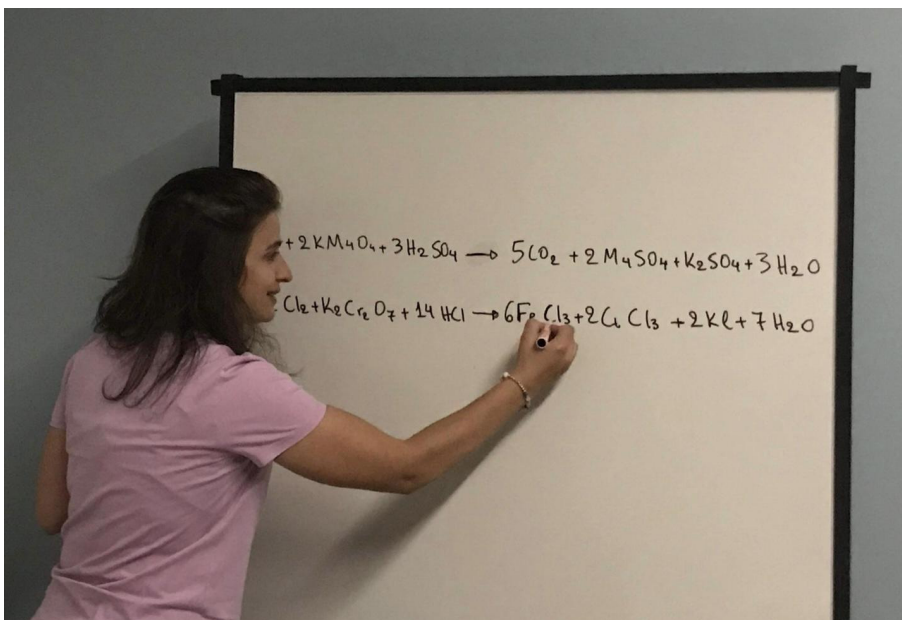 + 2KMnO4 + 3H2SO4 → 5CO2 + 2MnSO4 + K2SO4 + 3H2O
Cl2 + K2Cr2O7 + 14HCl → 6FeCl3 + 2CrCl3 + 2KCl + 7H2O